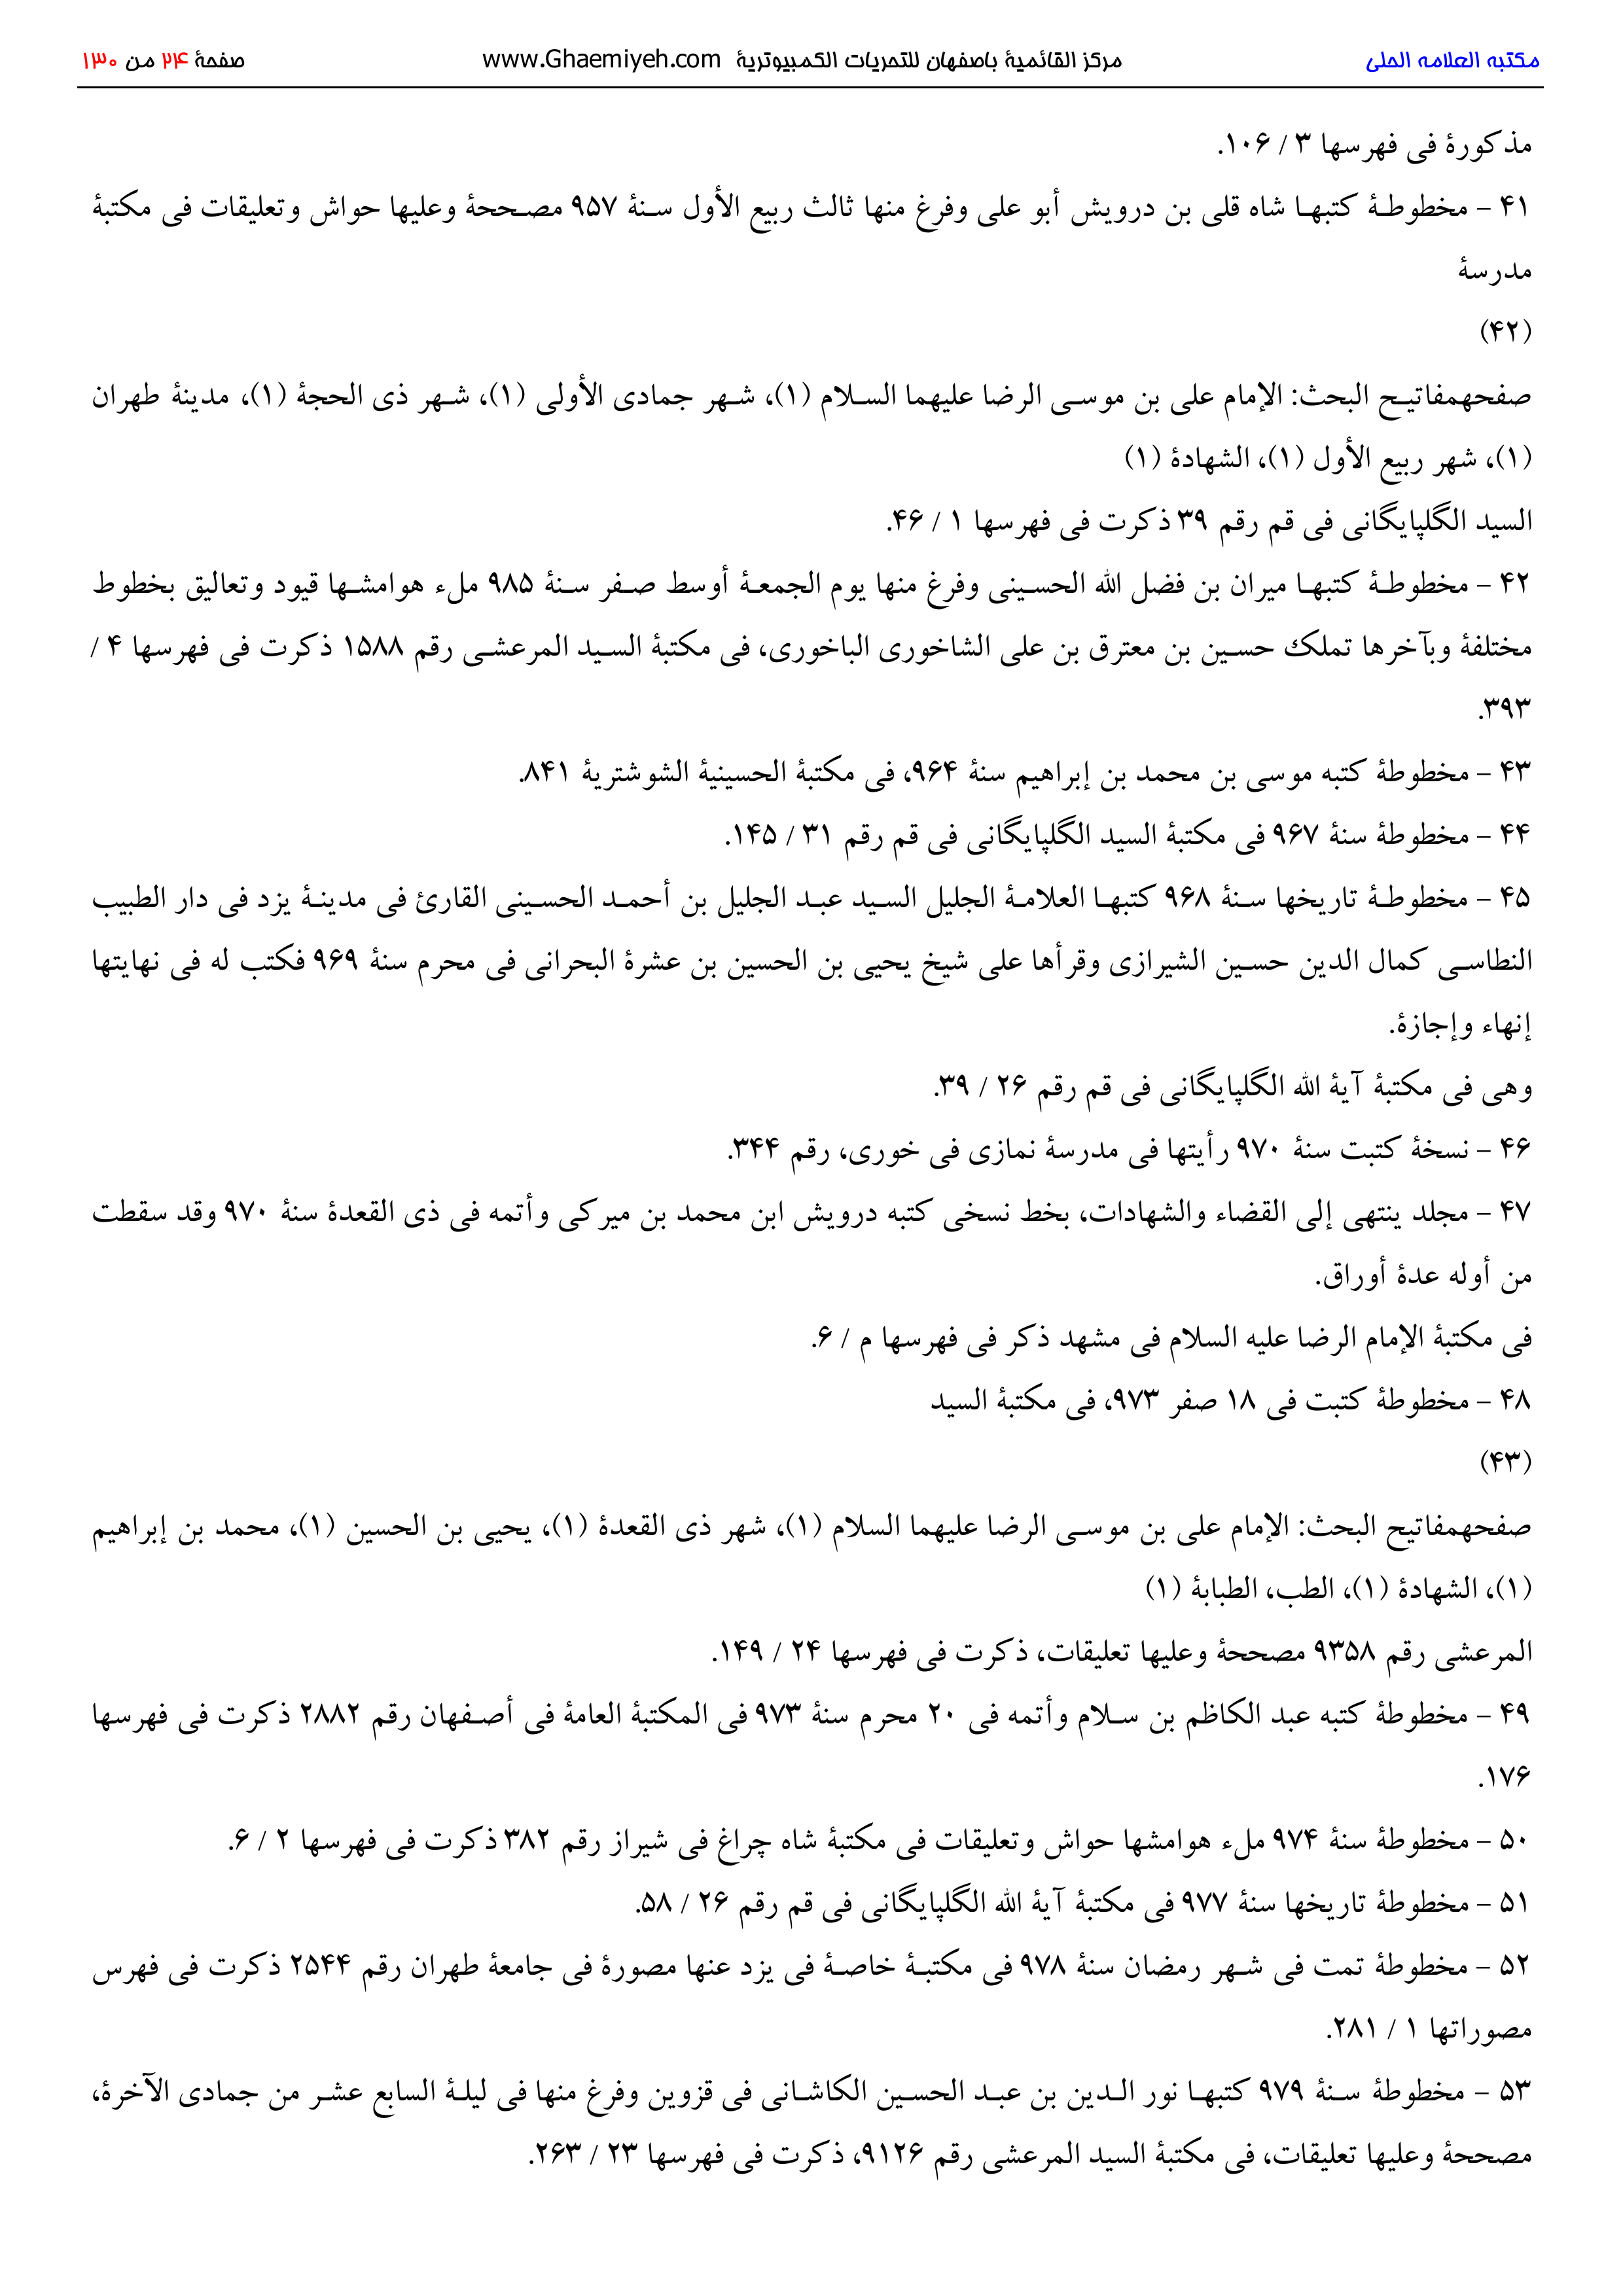 مكتبه العلامه الحلى مركز القائمیۀ باصفهان للتحریات الکمبیوتریۀ www.Ghaemiyeh.com صفحۀ ۲۴ من ۱۳۰
مذکورۀ فی فهرسها ۳ / ۱۰۶.
۴۱ – مخطوطۀ کتبها شاه قلی بن درویش أبو علی وفرغ منها ثالث ربیع الأول سنۀ ۹۵۷ مصححۀ وعلیها حواش وتعلیقات فی مکتبۀ
مدرسۀ
(۴۲)
صفحهمفاتیح البحث: الإمام علی بن موسی الرضا علیهما السلام (۱)، شهر جمادی الأولی (۱)، شهر ذی الحجۀ (۱)، مدینۀ طهران
(۱)، شهر ربیع الأول (۱)، الشهادۀ (۱)
السید الگلپایگانی فی قم رقم ۳۹ ذکرت فی فهرسها ۱ / ۴۶.
۴۲ – مخطوطۀ کتبها میران بن فضل الله الحسینی وفرغ منها یوم الجمعۀ أوسط صفر سنۀ ۹۸۵ ملء هوامشها قیود وتعالیق بخطوط
مختلفۀ وبآخرها تملک حسین بن معترق بن علی الشاخوری الباخوری، فی مکتبۀ السید المرعشی رقم ۱۵۸۸ ذکرت فی فهرسها ۴ /
۳۹۳.
۴۳ – مخطوطۀ کتبه موسی بن محمد بن إبراهیم سنۀ ۹۶۴، فی مکتبۀ الحسینیۀ الشوشتریۀ ۸۴۱.
۴۴ – مخطوطۀ سنۀ ۹۶۷ فی مکتبۀ السید الگلپایگانی فی قم رقم ۳۱ / ۱۴۵.
۴۵ – مخطوطۀ تاریخها سنۀ ۹۶۸ کتبها العلامۀ الجلیل السید عبد الجلیل بن أحمد الحسینی القارئ فی مدینۀ یزد فی دار الطبیب
النطاسی کمال الدین حسین الشیرازی وقرأها علی شیخ یحیی بن الحسین بن عشرۀ البحرانی فی محرم سنۀ ۹۶۹ فکتب له فی نهایتها
إنهاء وإجازۀ.
وهی فی مکتبۀ آیۀ الله الگلپایگانی فی قم رقم ۲۶ / ۳۹.
۴۶ – نسخۀ کتبت سنۀ ۹۷۰ رأیتها فی مدرسۀ نمازی فی خوری، رقم ۳۴۴.
۴۷ – مجلد ینتهی إلی القضاء والشهادات، بخط نسخی کتبه درویش ابن محمد بن میرکی وأتمه فی ذی القعدۀ سنۀ ۹۷۰ وقد سقطت
من أوله عدۀ أوراق.
فی مکتبۀ الإمام الرضا علیه السلام فی مشهد ذکر فی فهرسها م / ۶.
۴۸ – مخطوطۀ کتبت فی ۱۸ صفر ۹۷۳، فی مکتبۀ السید
(۴۳)
صفحهمفاتیح البحث: الإمام علی بن موسی الرضا علیهما السلام (۱)، شهر ذی القعدۀ (۱)، یحیی بن الحسین (۱)، محمد بن إبراهیم
(۱)، الشهادۀ (۱)، الطب، الطبابۀ (۱)
المرعشی رقم ۹۳۵۸ مصححۀ وعلیها تعلیقات، ذکرت فی فهرسها ۲۴ / ۱۴۹.
۴۹ – مخطوطۀ کتبه عبد الکاظم بن سلام وأتمه فی ۲۰ محرم سنۀ ۹۷۳ فی المکتبۀ العامۀ فی أصفهان رقم ۲۸۸۲ ذکرت فی فهرسها
۱۷۶.
۵۰ – مخطوطۀ سنۀ ۹۷۴ ملء هوامشها حواش وتعلیقات فی مکتبۀ شاه چراغ فی شیراز رقم ۳۸۲ ذکرت فی فهرسها ۲ / ۶.
۵۱ – مخطوطۀ تاریخها سنۀ ۹۷۷ فی مکتبۀ آیۀ الله الگلپایگانی فی قم رقم ۲۶ / ۵۸.
۵۲ – مخطوطۀ تمت فی شهر رمضان سنۀ ۹۷۸ فی مکتبۀ خاصۀ فی یزد عنها مصورۀ فی جامعۀ طهران رقم ۲۵۴۴ ذکرت فی فهرس
مصوراتها ۱ / ۲۸۱.
۵۳ – مخطوطۀ سنۀ ۹۷۹ کتبها نور الدین بن عبد الحسین الکاشانی فی قزوین وفرغ منها فی لیلۀ السابع عشر من جمادی الآخرۀ،
مصححۀ وعلیها تعلیقات، فی مکتبۀ السید المرعشی رقم ۹۱۲۶، ذکرت فی فهرسها ۲۳ / ۲۶۳.